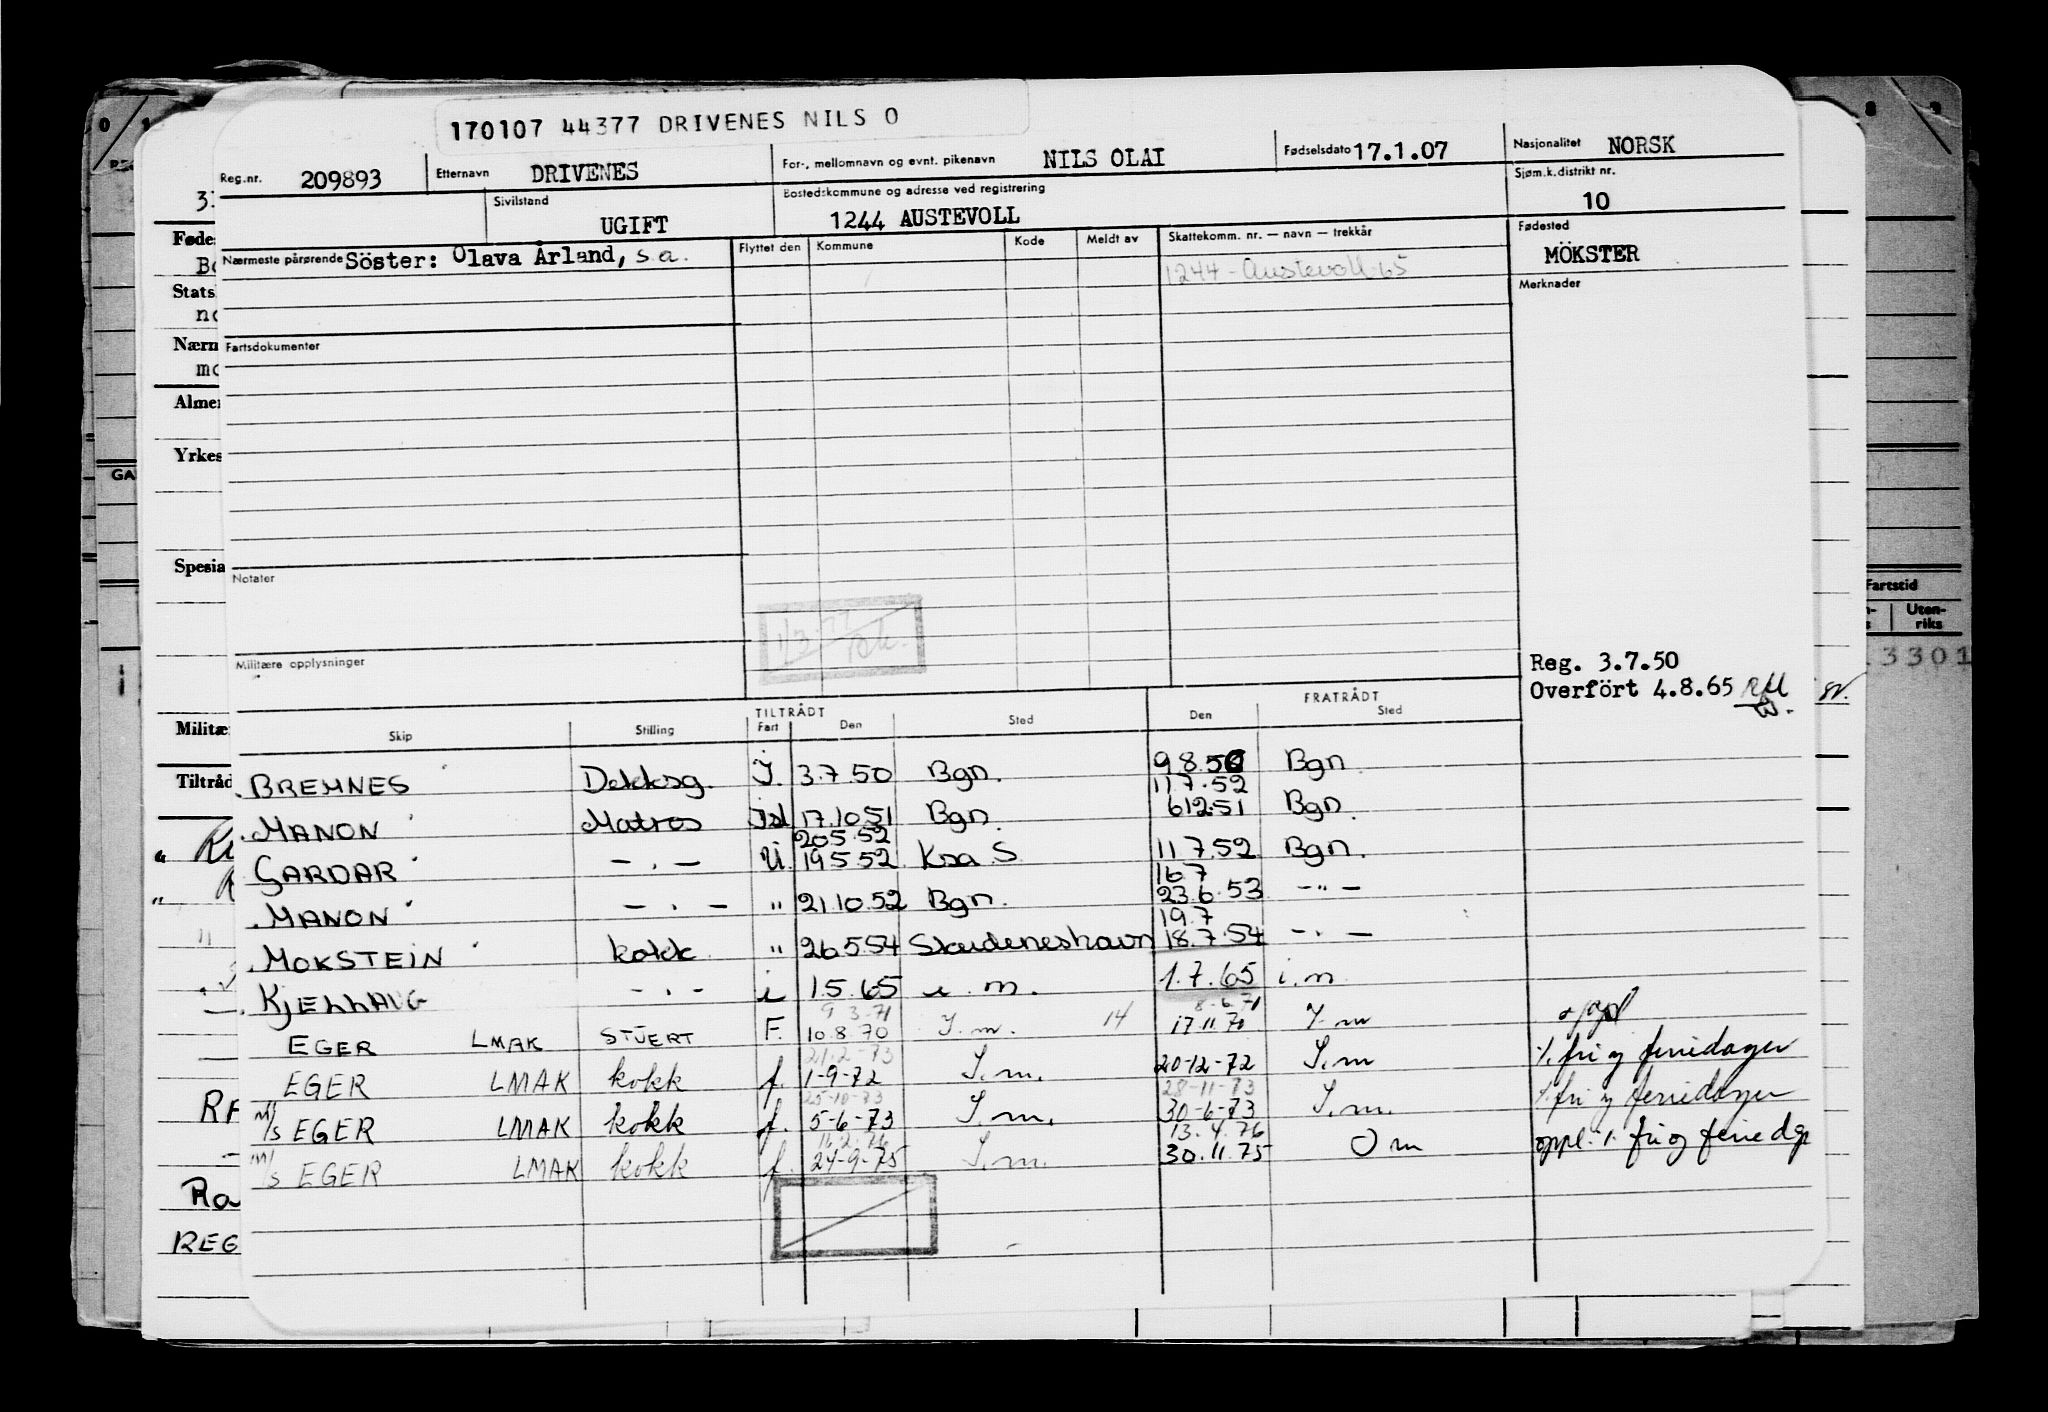 170107 44377 DRIVENES NILS O
Reg.nr. 209893 Etternavn DRIVENES For-, mellomnavn og evnt. pikenavn NILS OLAI Fødselsdato 17.1.07 Nasjonalitet NORSK
Sivilstand UGIFT Bostedskommune og adresse ved registrering 1244 AUSTEVOLL Sjøm.k.distrikt nr. 10
Nærmeste pårørende Söster: Olava Årland, s.a. Flyttet den Kommune Kode Meldt av Skattekomm. nr. — navn — trekkår Fødested MÖKSTER
1244 - Austevoll 65
Merknader
Fartsdokumenter
Notater
Militære opplysninger
Reg. 3.7.50
Overfört 4.8.65
TILTRÅDT FRATRÅDT
Skip Stilling Fart Den Sted Den Sted
BREMNES Dekksg. I. 3.7.50 Bgn. 9 8.50 Bgn.
11 7.52
MANON Matros 17.10 51 Bgn. 6 12.51 Bgn.
20 5.52
GARDAR — . — U. 19 5 52 Ksa S 11 7.52 Bgn.
16 7
MANON — . — " 21.10.52 Bgn. 23.6.53 — " —
19.7
MOKSTEIN kokk " 26 5 54 Skudeneshavn 18.7.54 — . —
KJELLAUG — . — i 1.5.65 i. m. 1.7.65 i. m
9 3-71 8-6 71
EGER LMAK STUERT F. 10.8.70 I. m. 14 17.11.70 I. m
21.2-73
EGER LMAK kokk f. 1-9-72 I. m. 20-12-72 I. m ./. fri og feriedager
25-10-73 28-11-73
m/s EGER LMAK kokk f. 5-6-73 I. m. 30-6-73 I. m. ./. fri og feriedager
16.2.76 13.4.76
m/s EGER LMAK kokk f. 24-9-75 I. m. 30.11.75 O m oppl. ./. fri og feriedg
Fødes
Stats
Nærm
Almen
Yrkes
Spesia
Militæ
Tiltråd
REG
GA
Fartstid
Uten-
riks
3301